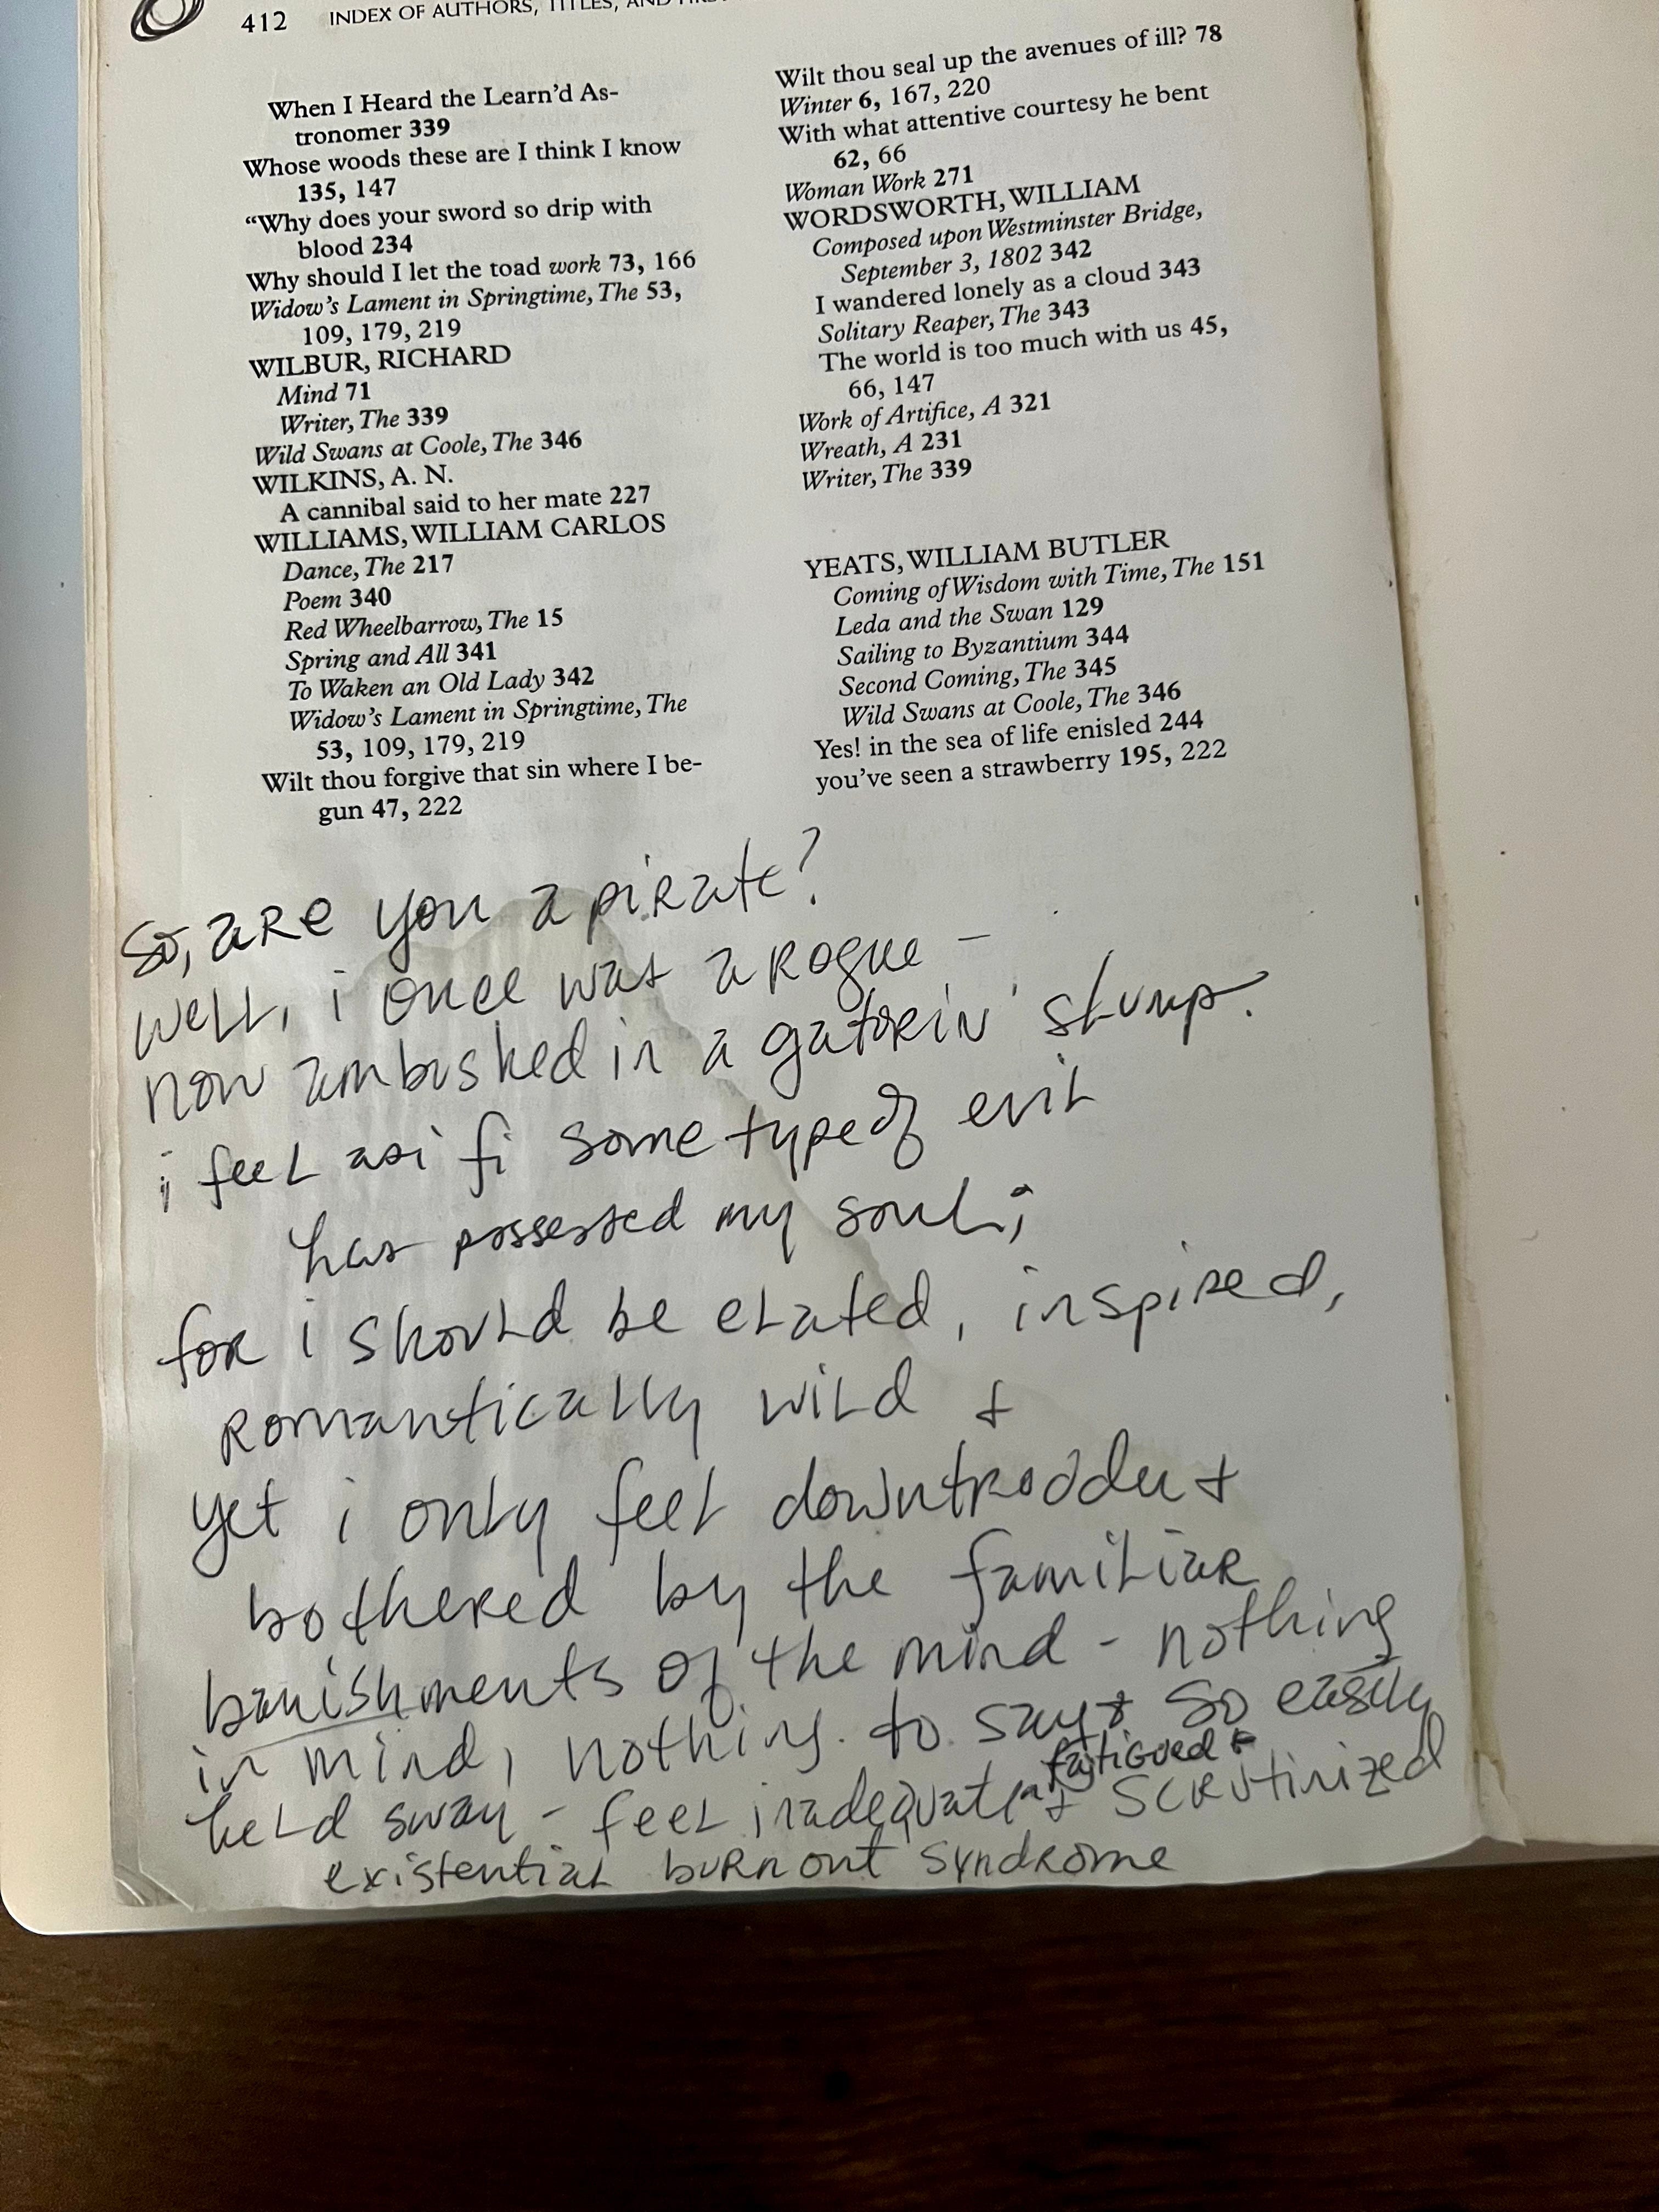 412 INDEX OF AUTHORS, TITLES, AND
When I Heard the Learn'd As-
tronomer 339
Whose woods these are I think I know
135, 147
"Why does your sword so drip with
blood 234
Why should I let the toad work 73, 166
Widow's Lament in Springtime, The 53,
109, 179, 219
WILBUR, RICHARD
Mind 71
Writer, The 339
Wild Swans at Coole, The 346
WILKINS, A. N.
A cannibal said to her mate 227
WILLIAMS, WILLIAM CARLOS
Dance, The 217
Poem 340
Red Wheelbarrow, The 15
Spring and All 341
To Waken an Old Lady 342
Widow's Lament in Springtime, The
53, 109, 179, 219
Wilt thou forgive that sin where I be-
gun 47, 222
Wilt thou seal up the avenues of ill? 78
Winter 6, 167, 220
With what attentive courtesy he bent
62, 66
Woman Work 271
WORDSWORTH, WILLIAM
Composed upon Westminster Bridge,
September 3, 1802 342
I wandered lonely as a cloud 343
Solitary Reaper, The 343
The world is too much with us 45,
66, 147
Work of Artifice, A 321
Wreath, A 231
Writer, The 339
YEATS, WILLIAM BUTLER
Coming of Wisdom with Time, The 151
Leda and the Swan 129
Sailing to Byzantium 344
Second Coming, The 345
Wild Swans at Coole, The 346
Yes! in the sea of life enisled 244
you've seen a strawberry 195, 222
so, are you a pirate?
well, i once was a rogue –
now ambushed in a gatorin' slump.
i feel as if i some type of evil
has possessed my soul;
for i should be elated, inspired,
romantically wild +
yet i only feel downtrodden +
bothered by the familiar
banishments of the mind - nothing
in mind, nothing to say + so easily
held sway - feel inadequate fatigued + + scrutinized
existential burnout syndrome